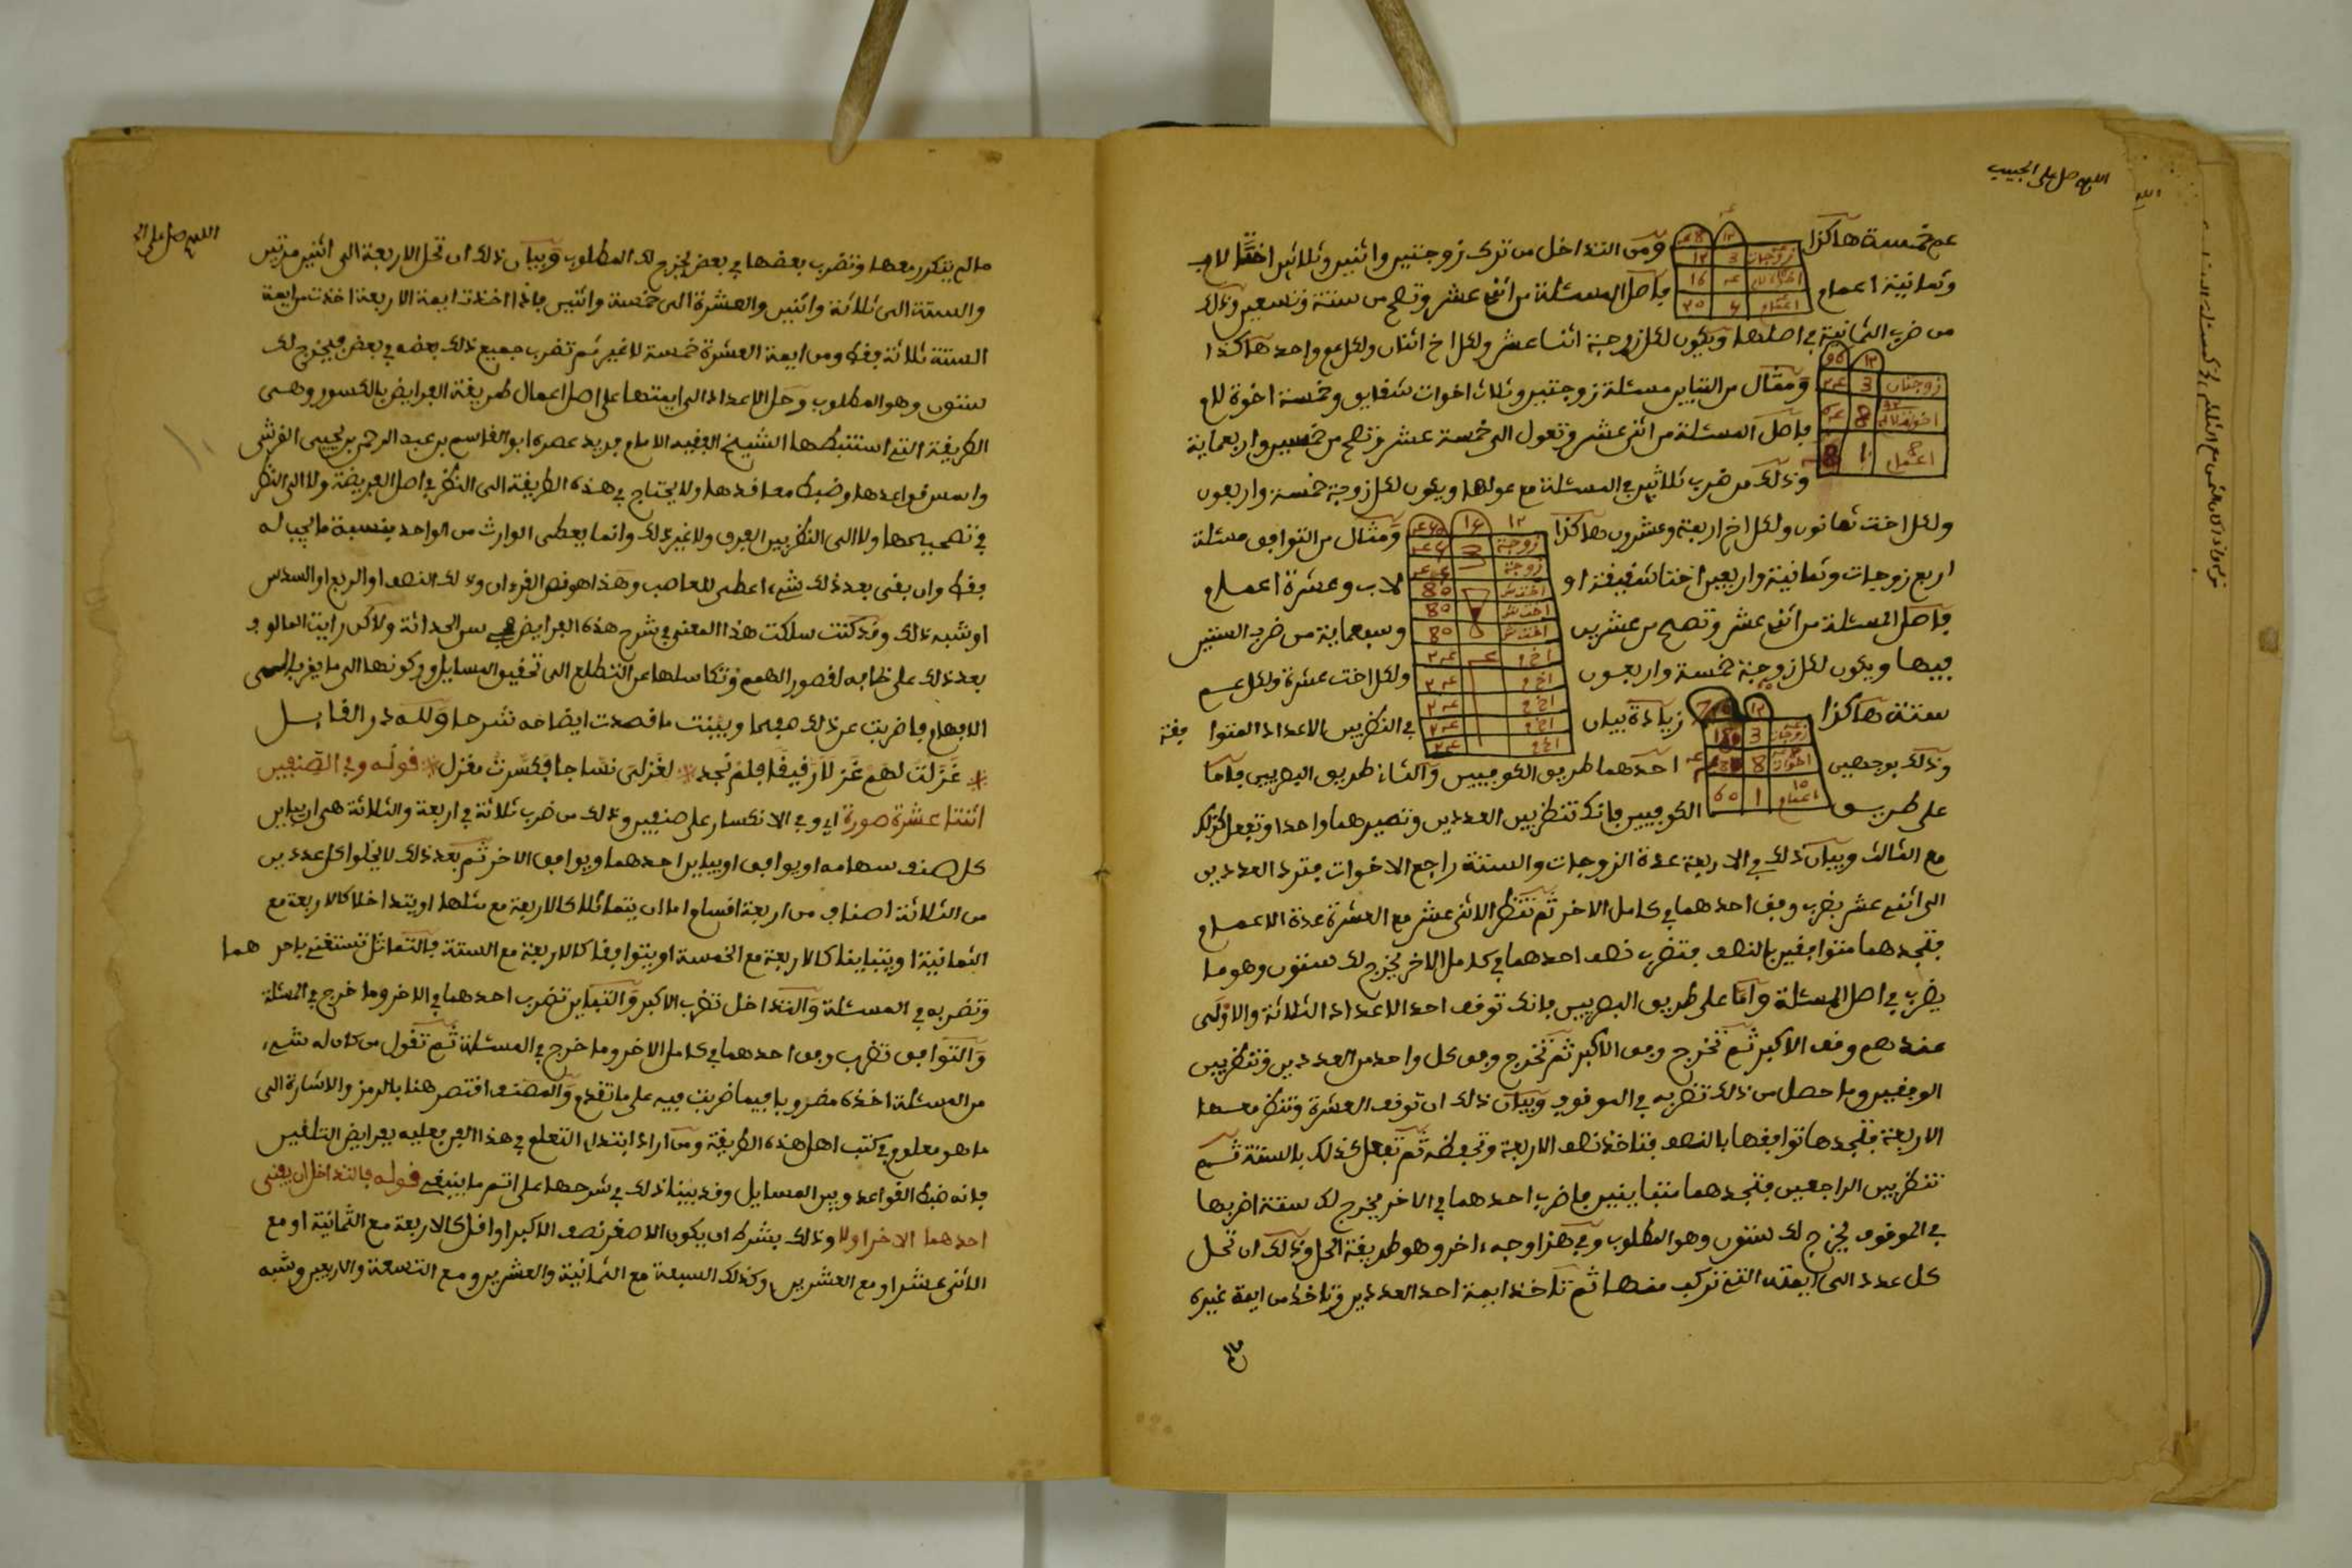 اللهم صل على الحبيب
عم خمسة هاكذا ومن التداخل من ترك زوجتين واثنين وثلاثين اختا لاب
وثمانية اعمام فاصل المسئلة من اثني عشر وتصح من ستة وتسعين وذلك
من ضرب الثمانية في اصلها ويكون لكل زوجة اثنا عشر ولكل اخ اثنان ولكل عم واحد هاكذا
ومثال من التباين مسئلة زوجتين وثلاث اخوات شقايق وخمسة اخوة لام
فاصل المسئلة من اثني عشر وتعول الى خمسة عشر وتصح من خمسين واربعماية
وذلك من ضرب ثلاثين في المسئلة مع عولها ويكون لكل زوجة خمسة واربعون
ولكل اخت ثمانون ولكل اخ اربعة وعشرون هاكذا ومثال من التوافق مسئلة
اربع زوجات وثمانية واربعين اختا شقيقة او لاب وعشرة اعمام
فاصل المسئلة من اثني عشر وتصح من عشرين وسبعماية من ضرب الستين
فيها ويكون لكل زوجة خمسة واربعون ولكل اخت عشرة ولكل عم
ستة هاكذا زيادة بيان في النظر بين الاعداد المتوا فقة
وذلك بوجهين احدهما طريق الكوفيين والثاني طريق البصريين فاما
على طريق الكوفيين فانك تنظر بين العددين وتصيرهما واحدا وتفعل كذلك
مع الثالث وبيان ذلك في الاربعة عدة الزوجات والستة راجع الاخوات فترد العددين
الى اثني عشر بضرب وفق احدهما في كامل الاخر ثم تنظر الاثني عشر مع العشرة عدة الاعمام
فتجدهما متوافقين بالنصف فتضرب نصف احدهما في كامل الاخر يخرج لك ستون وهو ما
يضرب في اصل المسئلة واما على طريق البصريين فانك توقف احد الاعداد الثلاثة والاولى
عندهم وقف الاكبر ثم تخرج وفق الاكبر ثم تخرج وفق كل واحد من العددين وتنظر بين
الوفقين وما حصل من ذلك تضربه في الموقوف وبيان ذلك ان توقف العشرة وتنظر معها
الاربعة فتجدها توافقها بالنصف فتاخذ نصف الاربعة وتحفظه ثم تفعل كذلك بالستة ثم
تنظر بين الراجعين فتجدهما متباينين فاضرب احدهما في الاخر يخرج لك ستة اضربها
في الموقوف يخرج لك ستون وهو المطلوب وفي هذا وجه ءاخر وهو طريقة الحل وذلك ان تحل
كل عدد الى ايمته التي تركب منها ثم تاخذ ايمة احد العددين وتاخذ من ايمة غيره
مالم
اللهم صل على
مالم يتكرر معها وتضرب بعضها في بعض يخرج لك المطلوب وبيان ذلك ان تحل الاربعة الى اثنين مرتين
والستة الى ثلاثة واثنين والعشرة الى خمسة واثنين فاذا اخذت ايمة الاربعة اخذت من ايمة
الستة ثلاثة فقط ومن ايمة العشرة خمسة لا غير ثم تضرب جميع ذلك بعضه في بعض فيخرج لك
ستون وهو المطلوب وحل الاعداد الى ايمتها على اصل اعمال طريقة الفرايض بالكسور وهي
الطريقة التي استنبطها الشيخ الفقيه الامام فريد عصره ابو القاسم بن عبد الرحمن بن يحيى القرشي
واسس قواعدها وضبط معاقدها ولا يحتاج في هذه الطريقة الى النظر في اصل الفريضة ولا الى النظر
في تصحيحها ولا الى النظر بين الفرق ولا غير ذلك وانما يعطى الوارث من الواحد بنسبة ما يجب له
فقط وان بقي بعد ذلك شيء اعطي للعاصب وهذا هو نص القرءان وذلك النصف او الربع او السدس
او شبه ذلك وقد كنت سلكت هذا المعنى في شرح هذه الفرايض في سن الحداثة ولاكن رايت المالوف
بعد ذلك على خلافه لقصور الهمم وتكاسلها عن التطلع الى تحقيق المسايل وركونها الى ما يقرب الى
الافهام فاضربت عن ذلك وبينت ما قصدت ايضاحه شرحا ولله در القايل
غزلت لهم غزلا رقيقا فلم نجد * لغزلي نساجا فكسرت مغزلي * قوله وفي الصنفين
اثنتا عشرة صورة اي وفي الانكسار على صنفين وذلك من ضرب ثلاثة في اربعة والثلاثة هي ان يباين
كل صنف سهامه او يوافق او يباين احدهما ويوافق الاخر ثم بعد ذلك لا يخلوا كل عددين
من الثلاثة اصناف من اربعة اقسام اما ان يتماثلا كالاربعة مع مثلها او يتداخلا كالاربعة مع
الثمانية او يتباينا كالاربعة مع الخمسة او يتوافقا كالاربعة مع الستة فالتماثل تستغني باحدهما
وتضربه في المسئلة والتداخل تضرب الاكبر والتباين تضرب احدهما في الاخر وما خرج في المسئلة
والتوافق تضرب وفق احدهما في كامل الاخر وما خرج في المسئلة ثم تقول من كان له شيء
من المسئلة اخذه مضروبا فيما ضربت فيه على ما تقدم والمصنف اقتصر هنا بالرمز والاشارة الى
ما هو معلوم في كتب اهل هذه الطريقة ومن اراد ابتداء التعلم في هذا الفن فعليه بفرايض التلقين
فانه ضبط القواعد وبين المسايل وقد بينا ذلك في شرحها على اتم ما ينبغي قوله فالتداخل ان يفنى
احدهما الاخر اولا وذلك بشرط ان يكون الاصغر نصف الاكبر او اقل كالاربعة مع الثمانية او مع
الاثني عشر او مع العشرين وكذلك السبعة مع الثمانية والعشرين ومع التسعة والاربعين وشبه